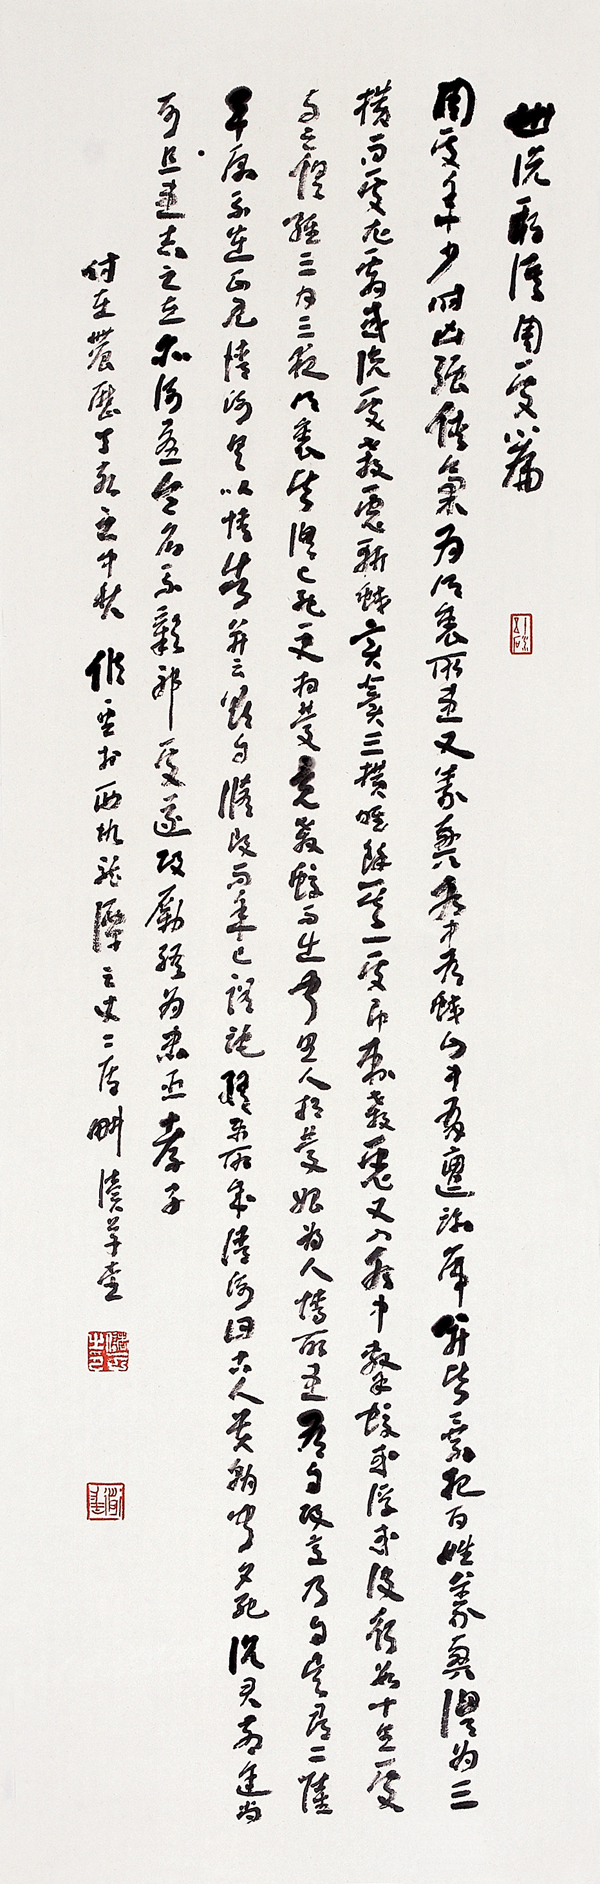 世說新語周處篇
周處年少時凶強俠氣為鄉里所患又義興水中有蛟山中有邅跡虎並皆暴犯百姓義興謂為三
橫而處尤劇或說處殺虎斬蛟實冀三橫唯餘其一處即刺殺虎又入水中擊蛟或浮或沒行數十里處
與之俱經三日三夜鄉里皆謂已死更相慶竟殺蛟而出聞里人相慶始為人情所患有自改意乃自吳尋二陸
平原不在正見清河具以情告並云欲自修改而年已蹉跎終無所成清河曰古人貴朝聞夕死況君前途尚
可且患志之立亦何憂令名不彰邪處遂改勵終為忠臣孝子
時在農歷丁亥之中秋 於西 潭之 草堂